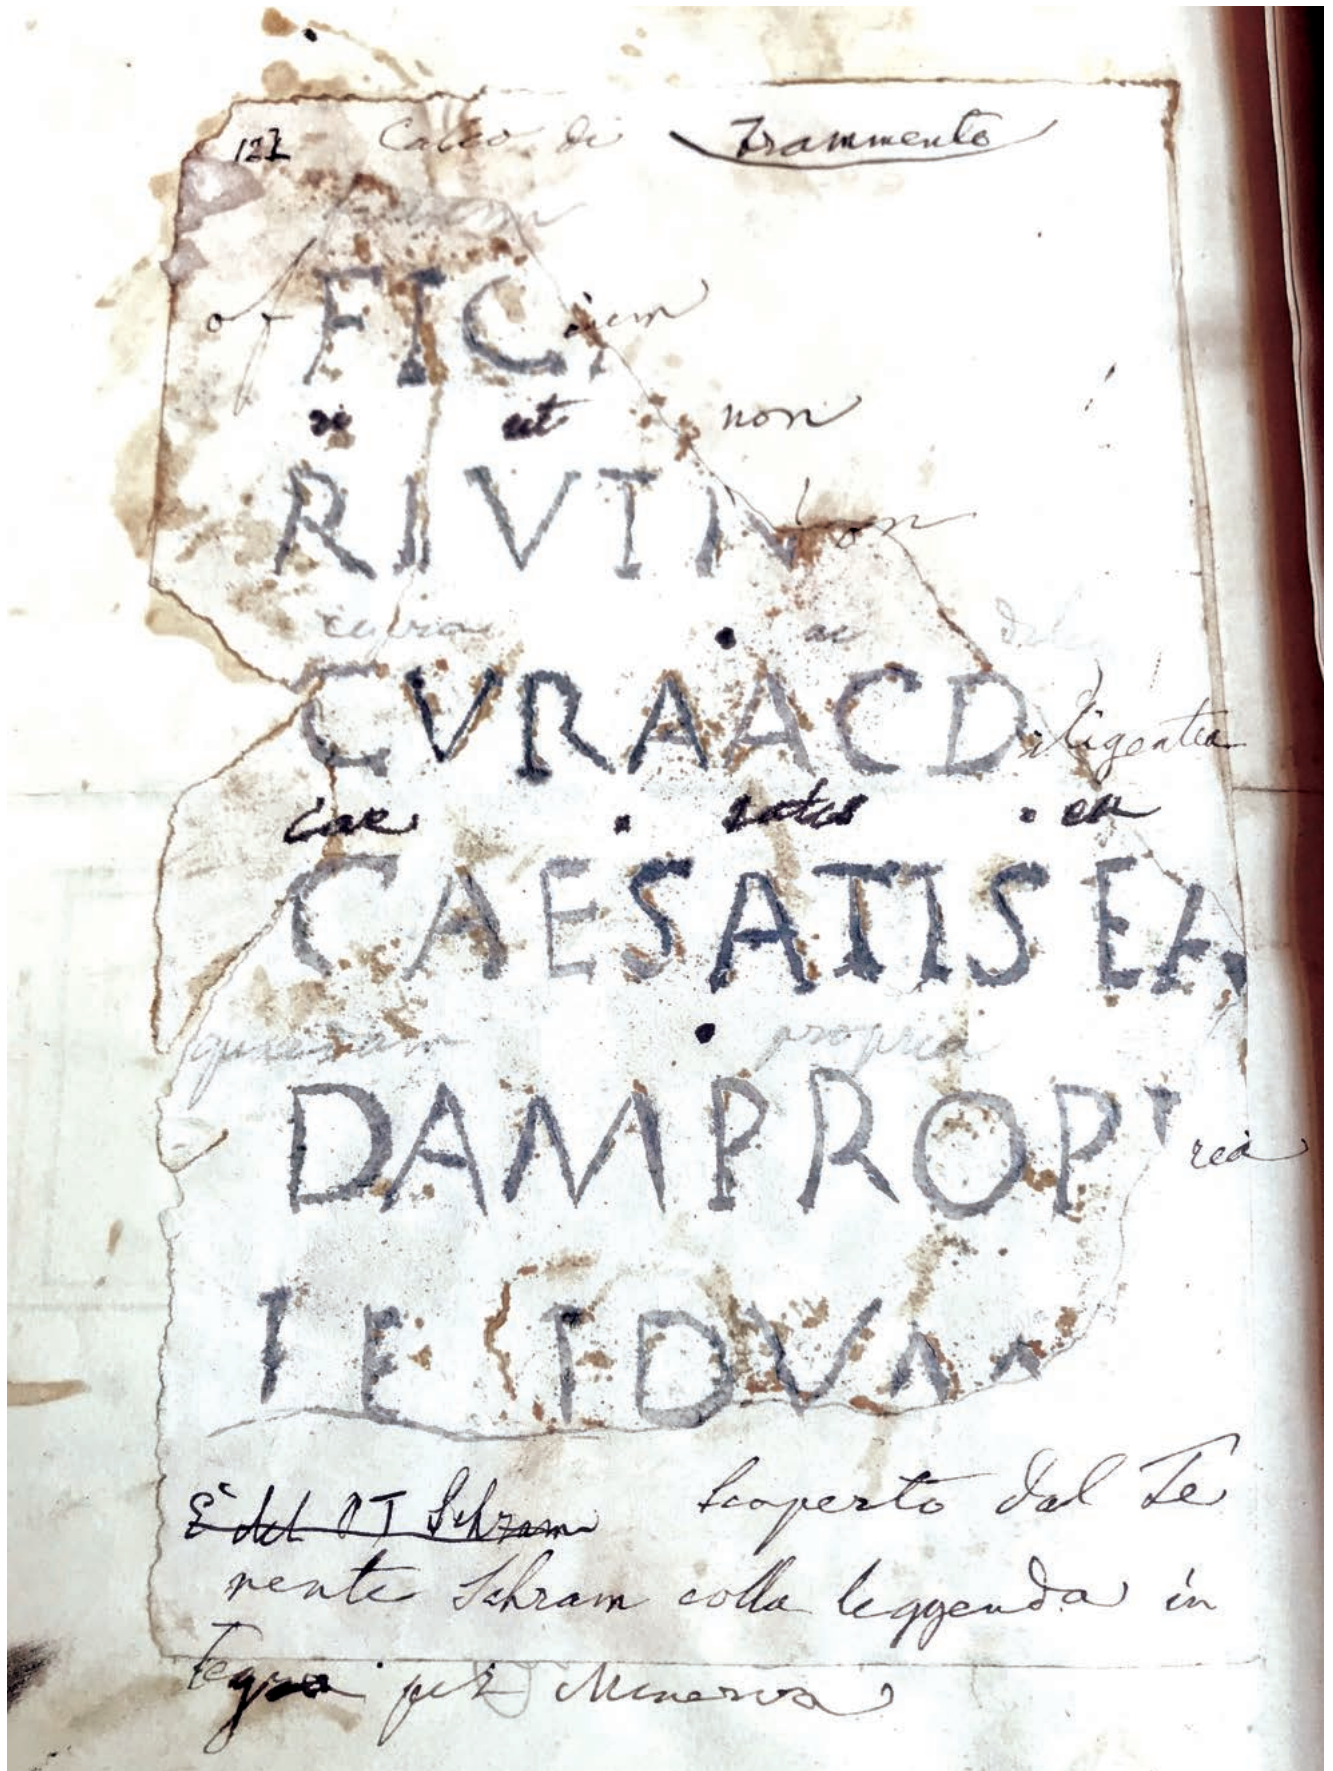 127 Calco di Frammento
of FIC ium
ri ut non
RIVTI on
ac
CVRAACD iligentea
cae satis ea
CAESATISEA
quaedam propria
DAMPROP ria
TE TDVM
È del OT Schram Scoperto dal Te
nente Schram colla leggenda in
Tegra per Minerva